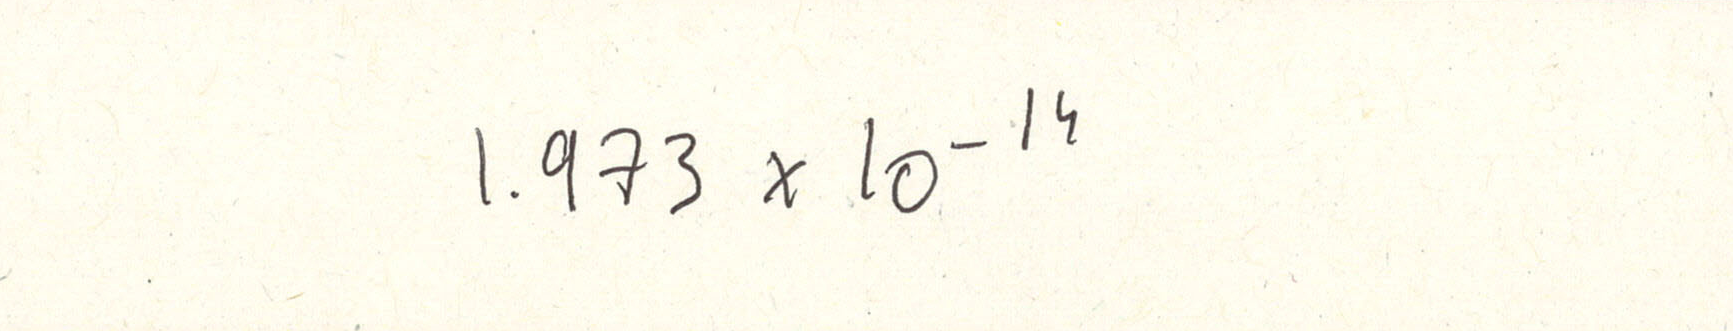 1.973 x 10⁻¹⁴